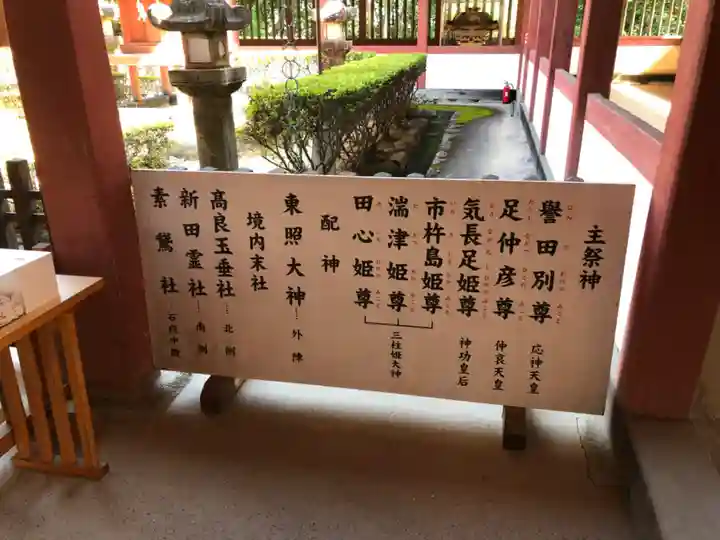 主祭神
譽田別尊 応神天皇
足仲彦尊 仲哀天皇
気長足姫尊 神功皇后
市杵島姫尊
湍津姫尊
田心姫尊
三柱姫大神
配神
東照大神…外陣
境内末社
高良玉垂社…北側
新田霊社…南側
素鵞社…石段中段